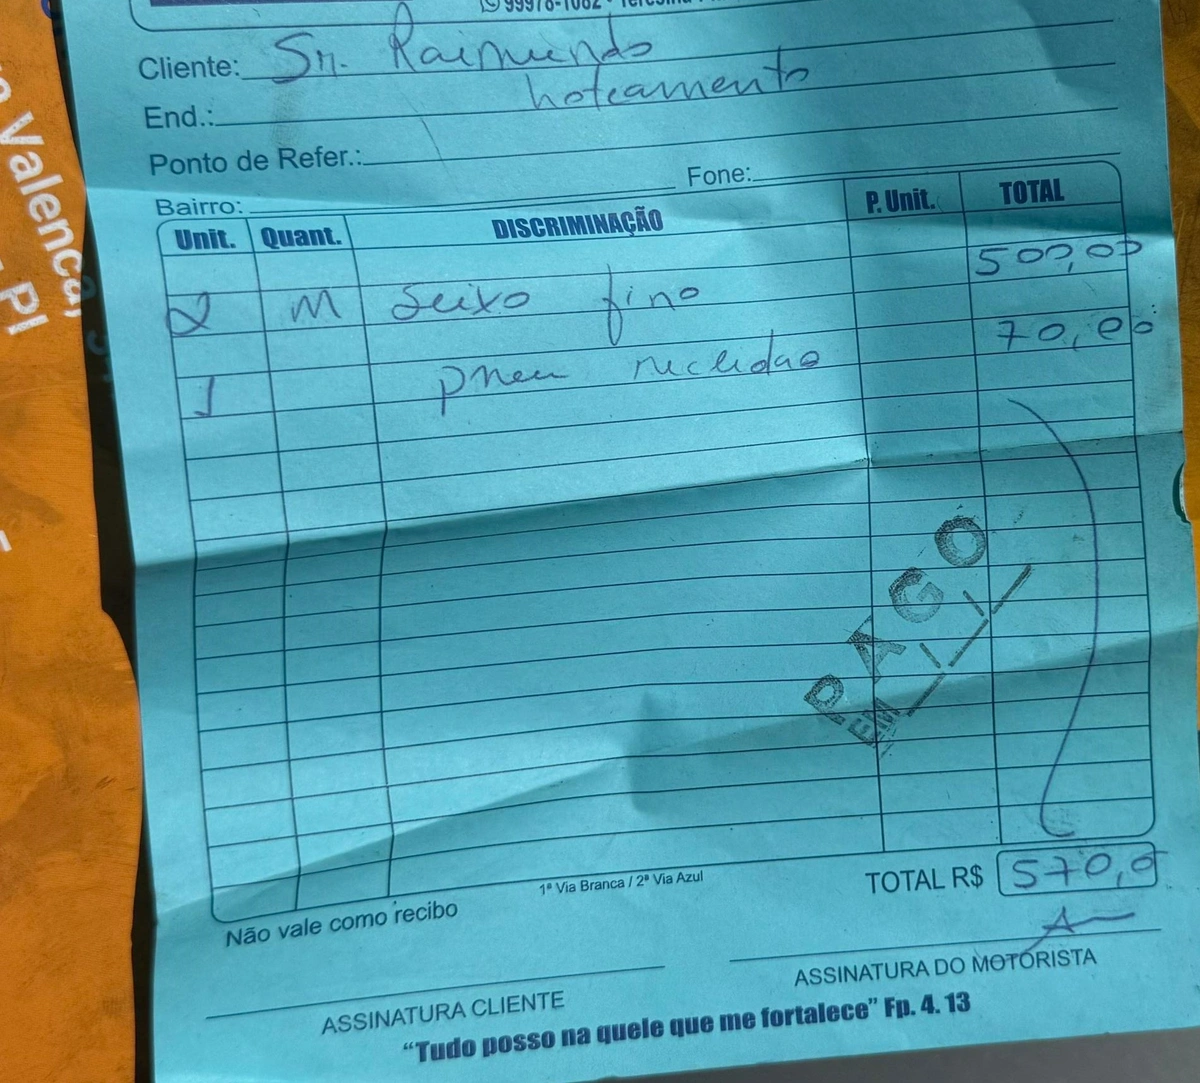 99978-1082
Cliente: Sr. Raimundo
loteamento
End.:
Ponto de Refer.:
Bairro: Fone:
Unit. Quant. DISCRIMINAÇÃO P. Unit. TOTAL
2 M Seixo fino 500,00
1 pneu 70,00
PAGO
EM
1ª Via Branca / 2ª Via Azul
TOTAL R$ 570,0
Não vale como recibo
ASSINATURA CLIENTE ASSINATURA DO MOTORISTA
“Tudo posso na quele que me fortalece” Fp. 4. 13
Valença,
PI